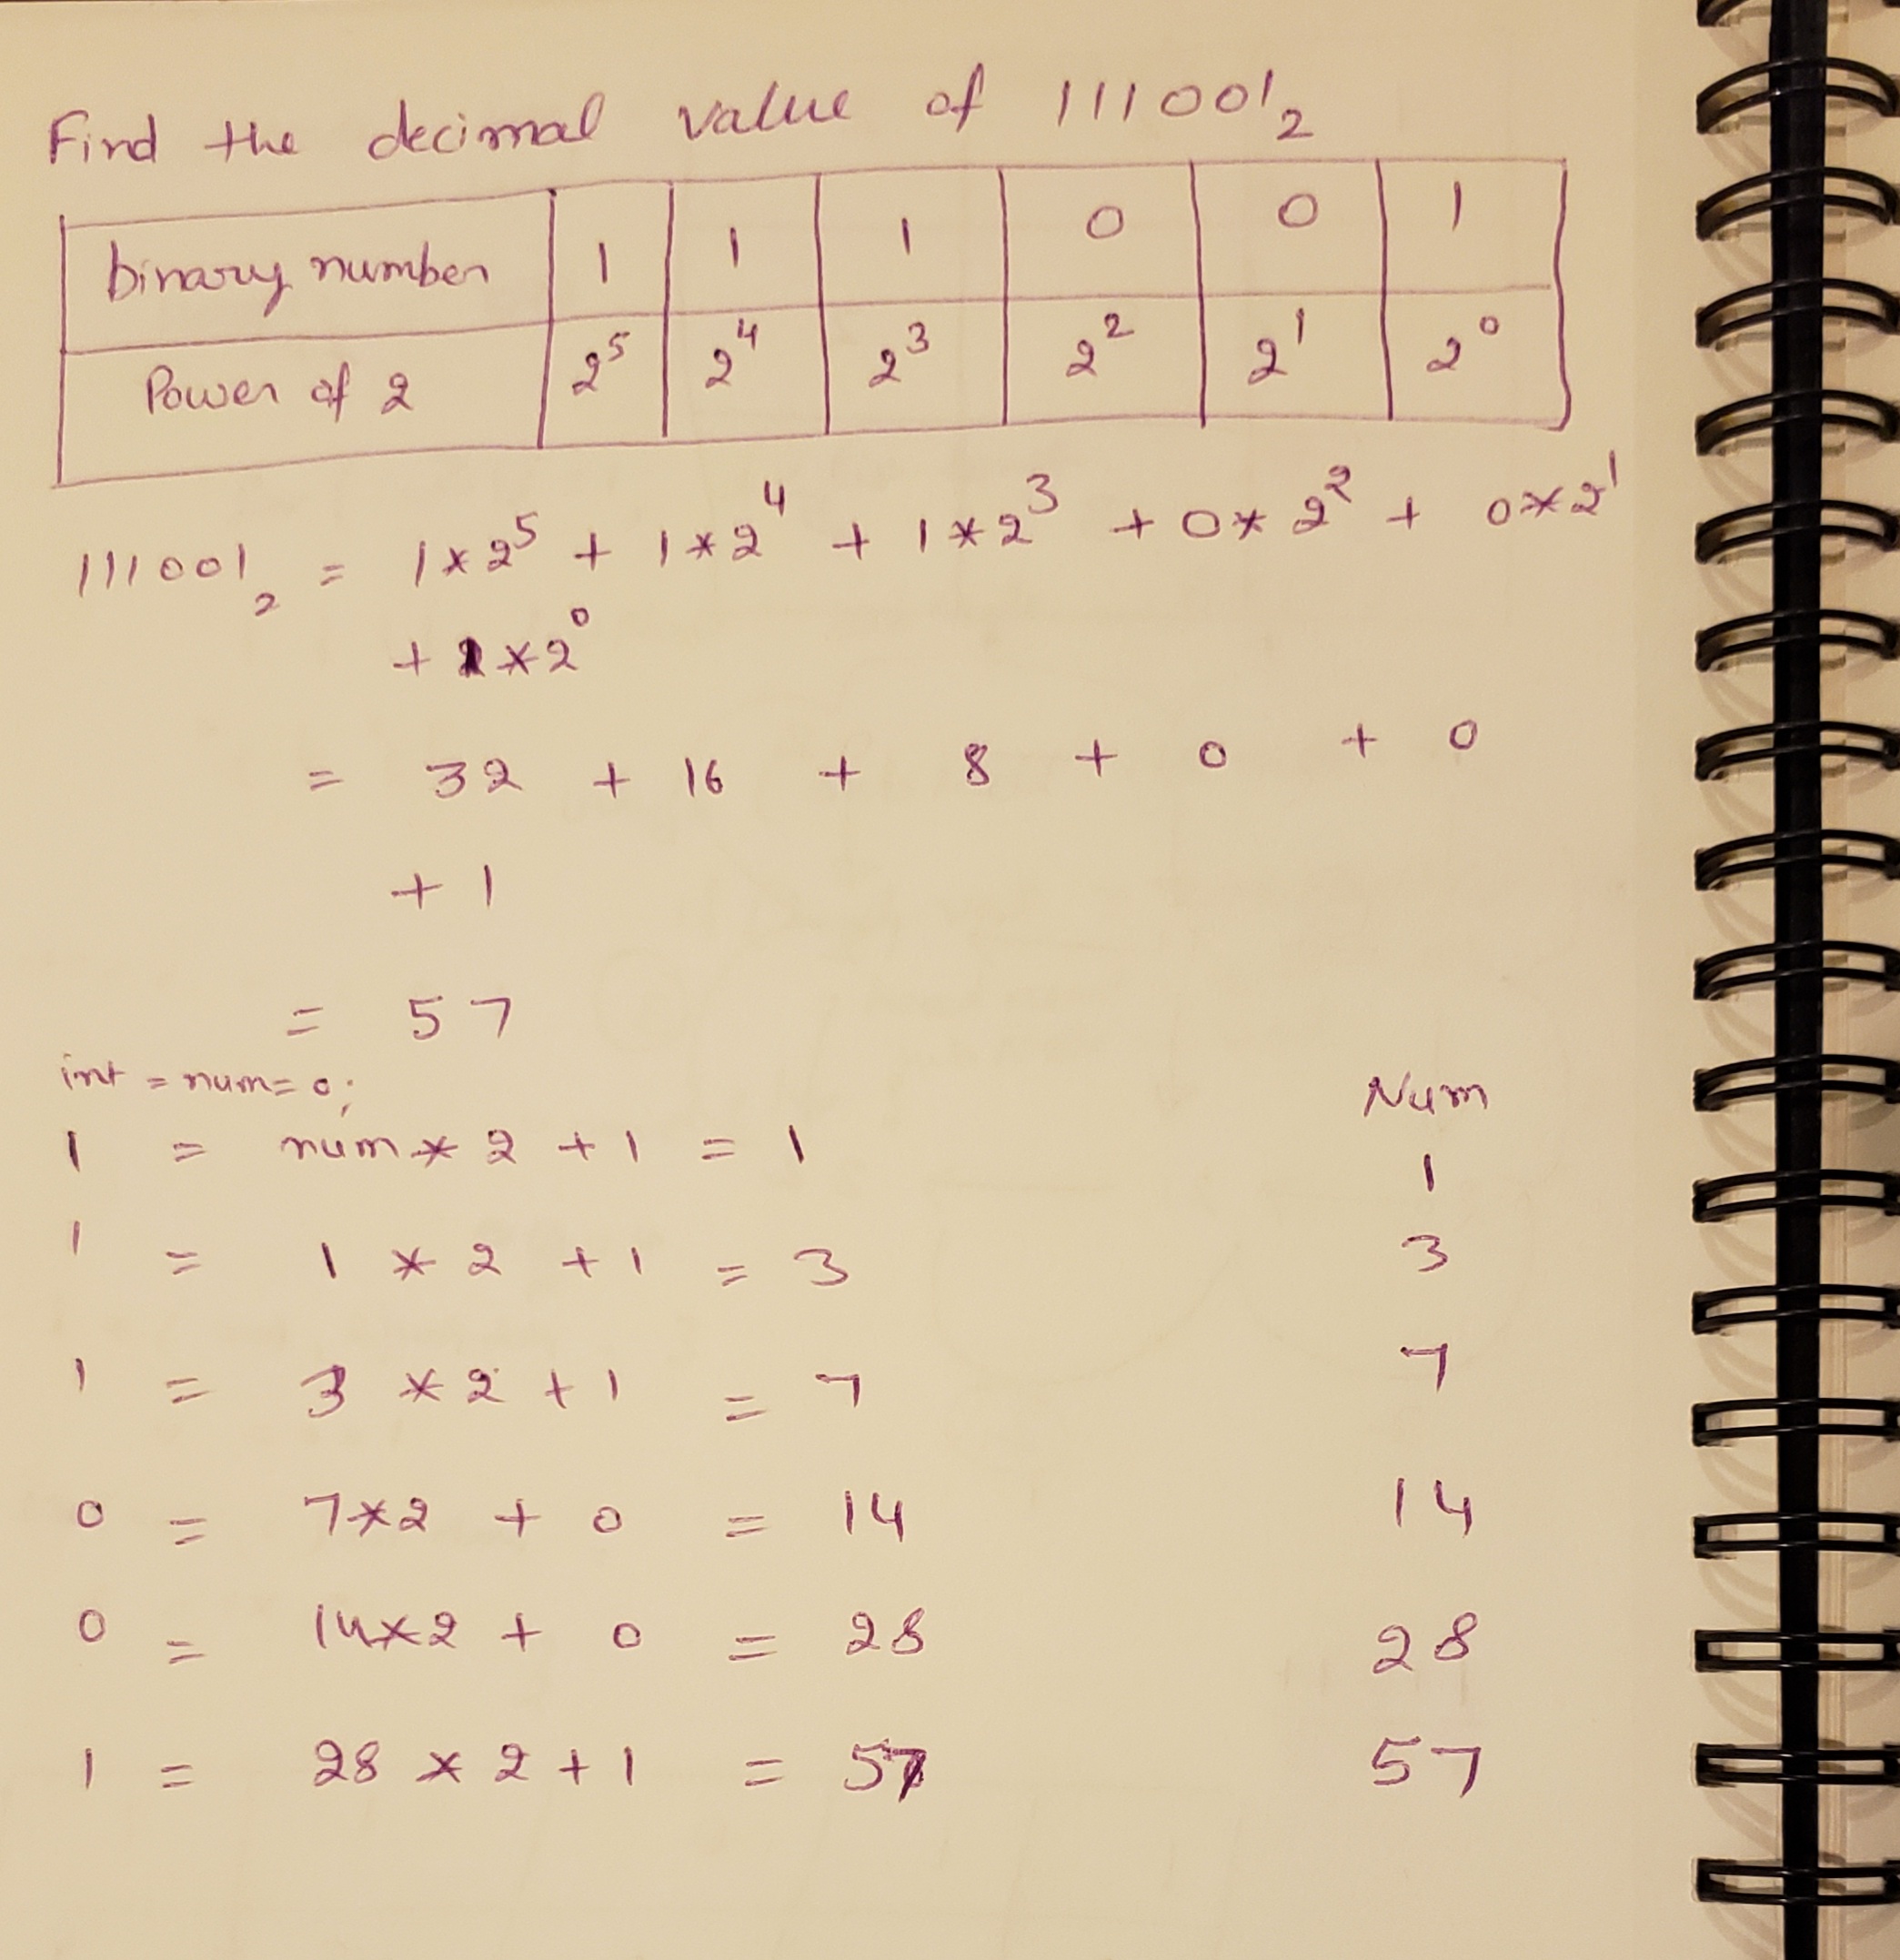 Find the decimal value of 111001₂
binary number 1 1 1 0 0 1
Power of 2 2⁵ 2⁴ 2³ 2² 2¹ 2⁰
111001₂ = 1*2⁵ + 1*2⁴ + 1*2³ + 0*2² + 0*2¹
+ 1*2⁰
= 32 + 16 + 8 + 0 + 0
+ 1
= 57
int = num=0; Num
1 = num * 2 + 1 = 1 1
1 = 1 * 2 + 1 = 3 3
1 = 3 * 2 + 1 = 7 7
0 = 7*2 + 0 = 14 14
0 = 14*2 + 0 = 28 28
1 = 28 * 2 + 1 = 57 57